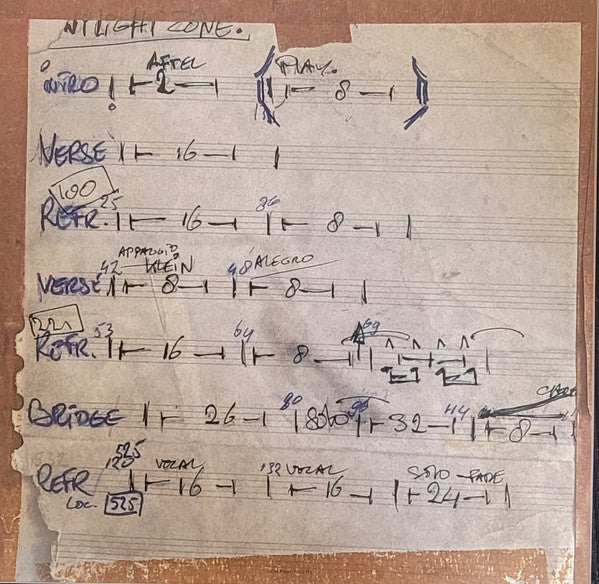 TWILIGHT ZONE.
AFTEL PLAY.
INTRO 2 8
VERSE 16
100
REFR. 25 16 36 8
APPAGGIO
42 KLEIN 48 ALEGRO
VERSE 8 8
221
REFR. 53 16 64 8 69
BRIDGE 26 80 SOLO 32 114 8
525
VOCAL 132 VOCAL SOLO - FADE
REFR 16 16 24
LOC. 525